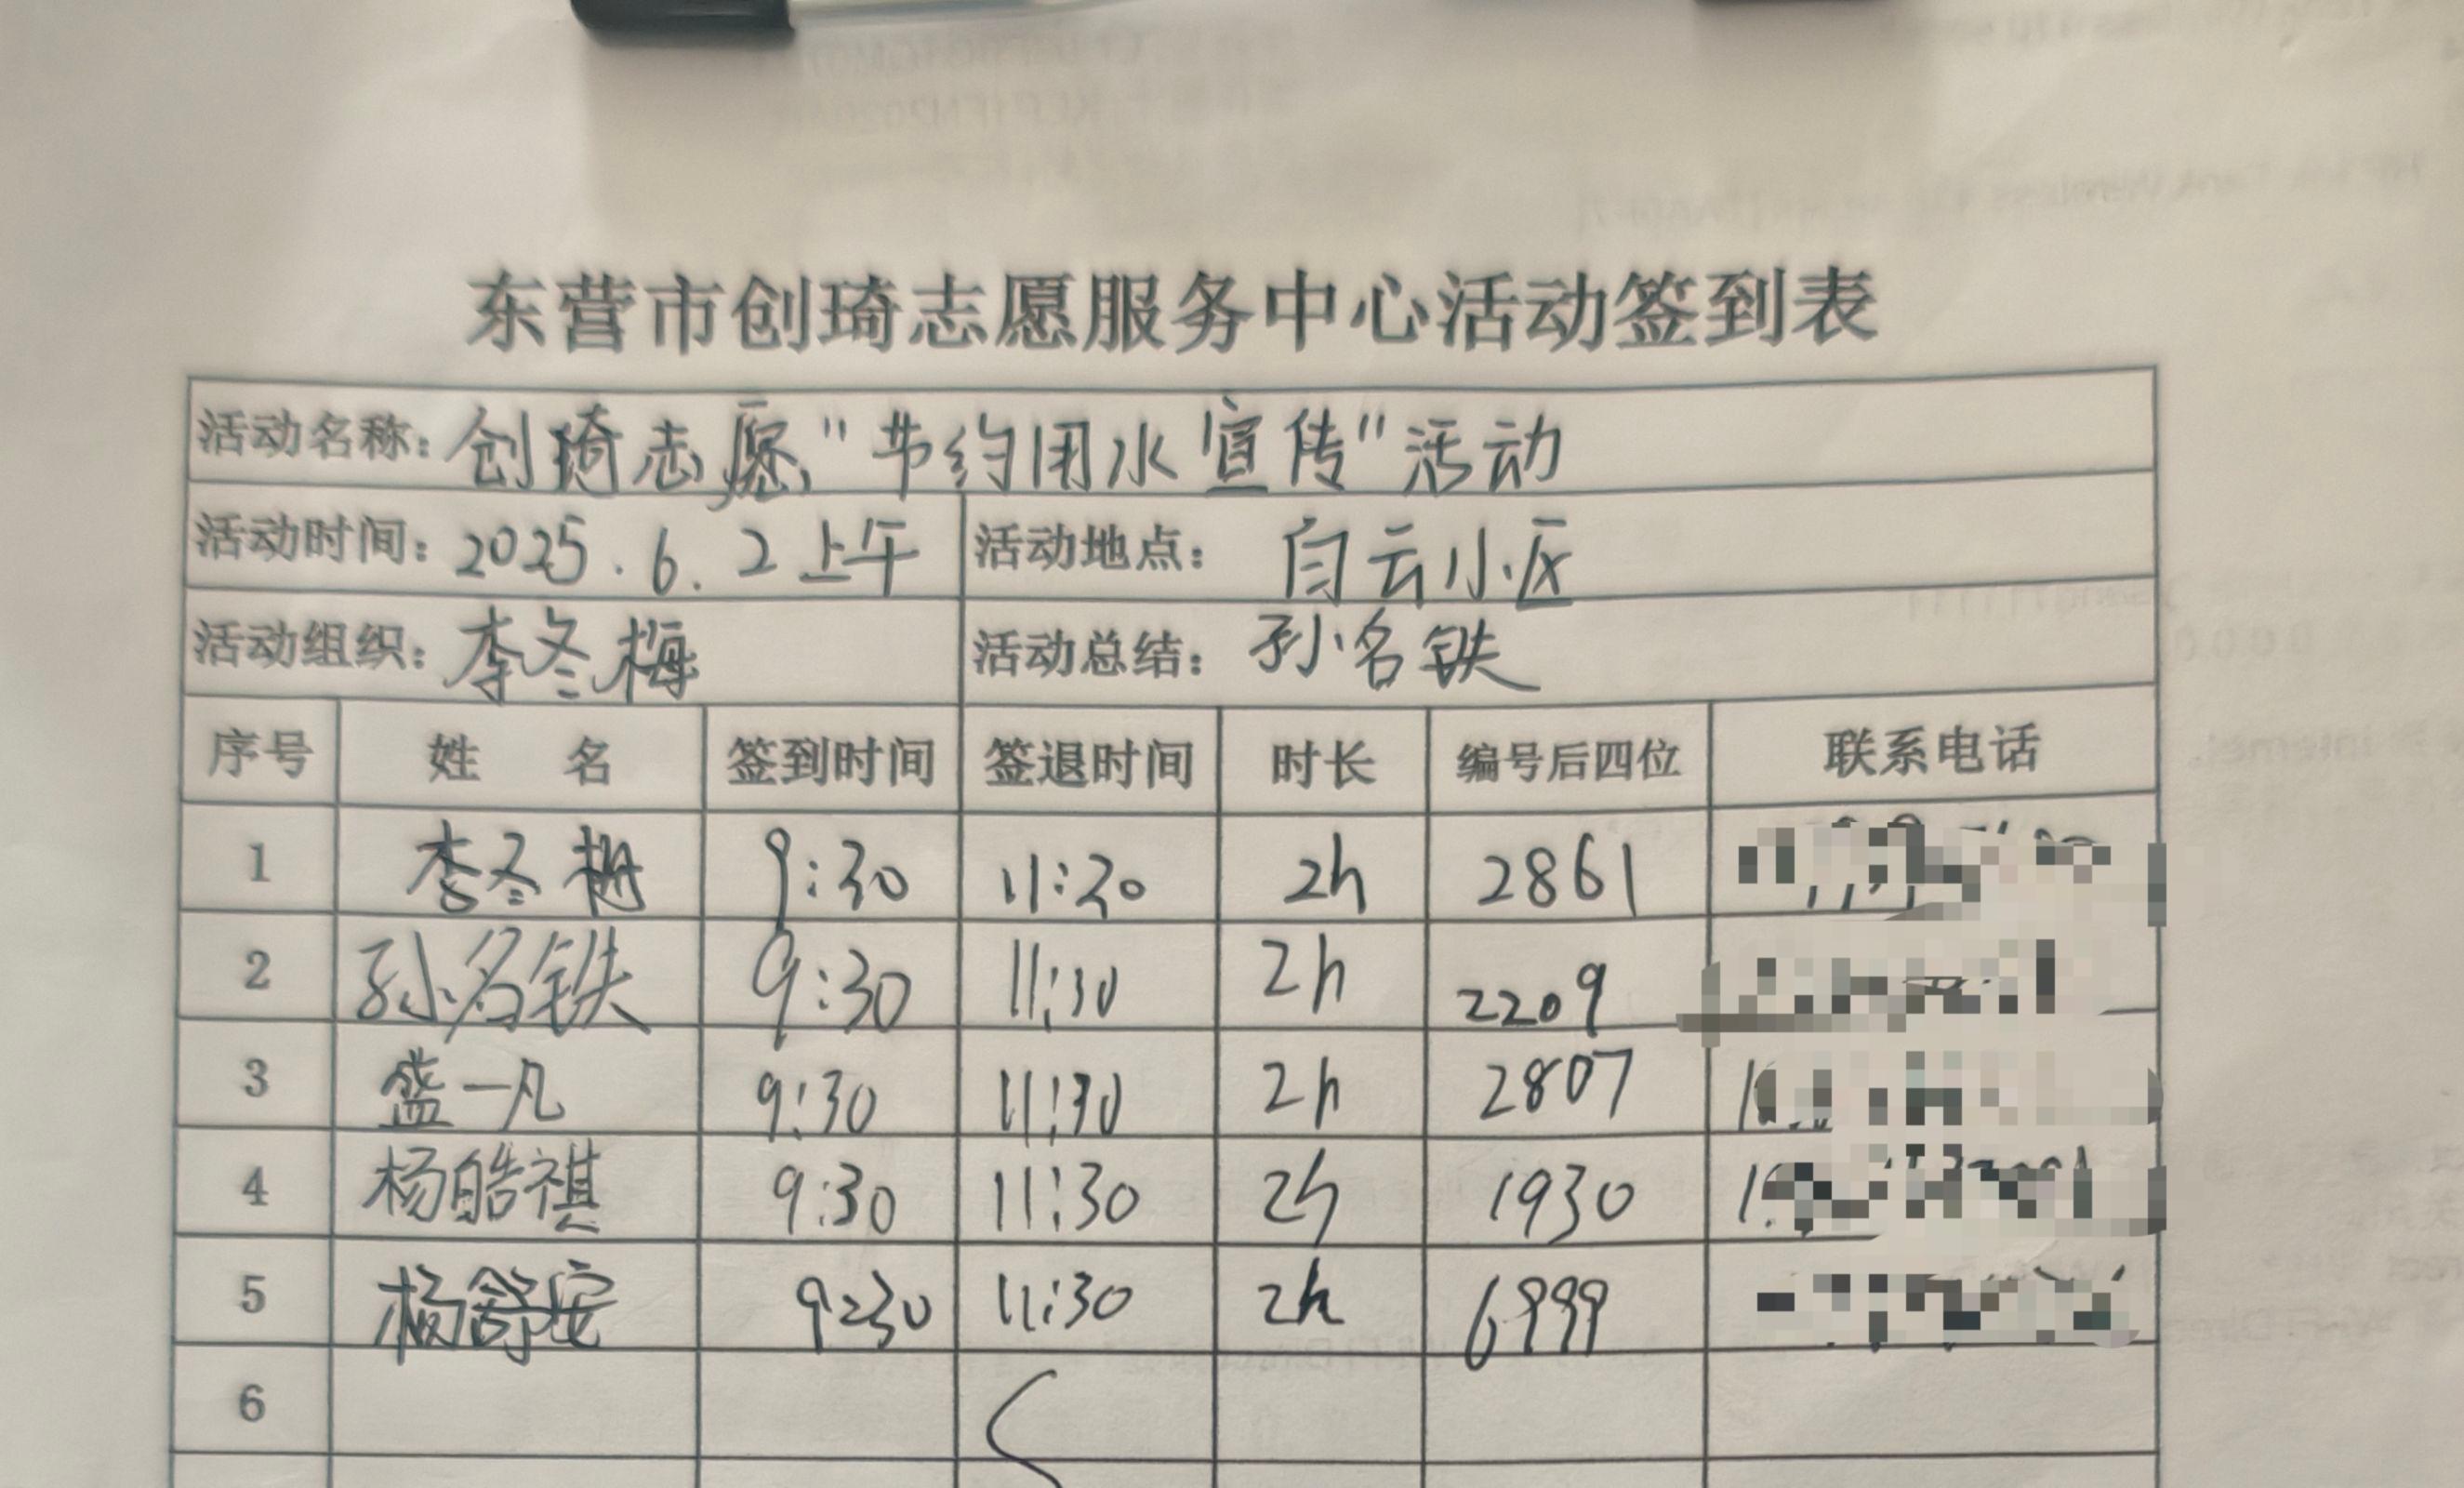 东营市创琦志愿服务中心活动签到表
活动名称：创琦志愿"节约用水宣传"活动
活动时间：2025.6.2上午 活动地点：白云小区
活动组织：李冬梅 活动总结：孙名铁
序号 姓 名 签到时间 签退时间 时长 编号后四位 联系电话
1 李冬梅 9:30 11:30 2h 2861
2 孙名铁 9:30 11:30 2h 2209
3 盛一凡 9:30 11:30 2h 2807
4 杨皓祺 9:30 11:30 2h 1930
5 杨舒安 9:30 11:30 2h 6999
6